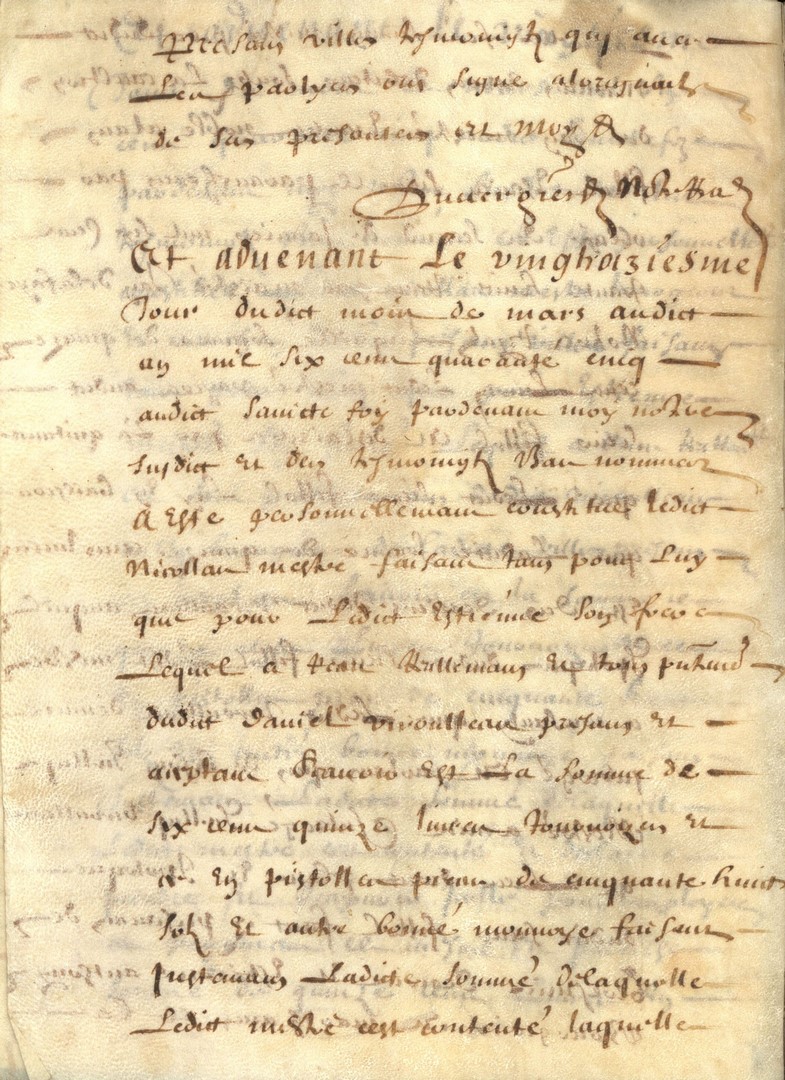 presans villes tesmoingtz quy avec
Les partyes ont signe aloriginal
de ses presentes et moy
Duvergier Notre Ra
Et advenant Le vingtroziesme
Jour dudict mois de mars audict
an mil six cens quarante cincq
audict Saincte foy pardevant moy notre
susdict et des tesmoingtz Bas nommez
A Este personnellemant constitué ledict
Nicollau mestre faisant tant pour Luy
que pour Ledict Estienne son frere
Lequel a reellemant et
dudict daniel presant et
aceptant scavoir Est La Somme de
six cens quinze livres tournoizes et
ce En pistolles de cinquante huict
solz Et autre bonne monnoye faisent
justemant Ladicte Somme delaquelle
Ledict mestre cest contenté laquelle